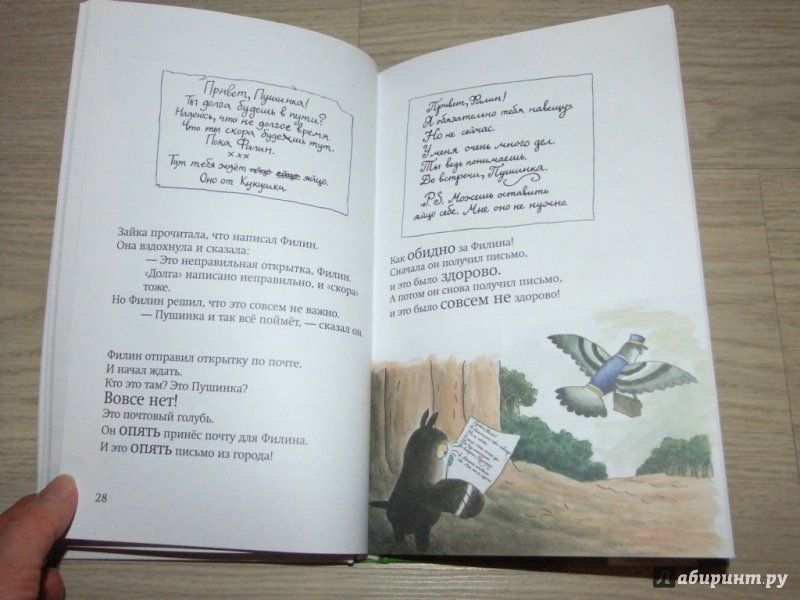 Привет, Пушинка!
Ты долга будешь в пути?
Надеюсь, что не долгое время.
Что ты скора будежшь тут.
Пока Филин.
ххх
Тут тебя ждёт яйцо.
Оно от Кукушки.
Зайка прочитала, что написал Филин.
Она вздохнула и сказала:
— Это неправильная открытка, Филин.
«Долга» написано неправильно, и «скора»
тоже.
Но Филин решил, что это совсем не важно.
— Пушинка и так всё поймёт, — сказал он.
Филин отправил открытку по почте.
И начал ждать.
Кто это там? Это Пушинка?
Вовсе нет!
Это почтовый голубь.
Он ОПЯТЬ принёс почту для Филина.
И это ОПЯТЬ письмо из города!
28
Привет, Филин!
Я обязательно тебя навещу.
Но не сейчас.
У меня очень много дел.
Ты ведь понимаешь.
До встречи, Пушинка.
P.S. Можешь оставить
яйцо себе. Мне оно не нужно.
Как обидно за Филина!
Сначала он получил письмо,
и это было здорово.
А потом он снова получил письмо,
и это было совсем не здорово!
Лабиринт.ру